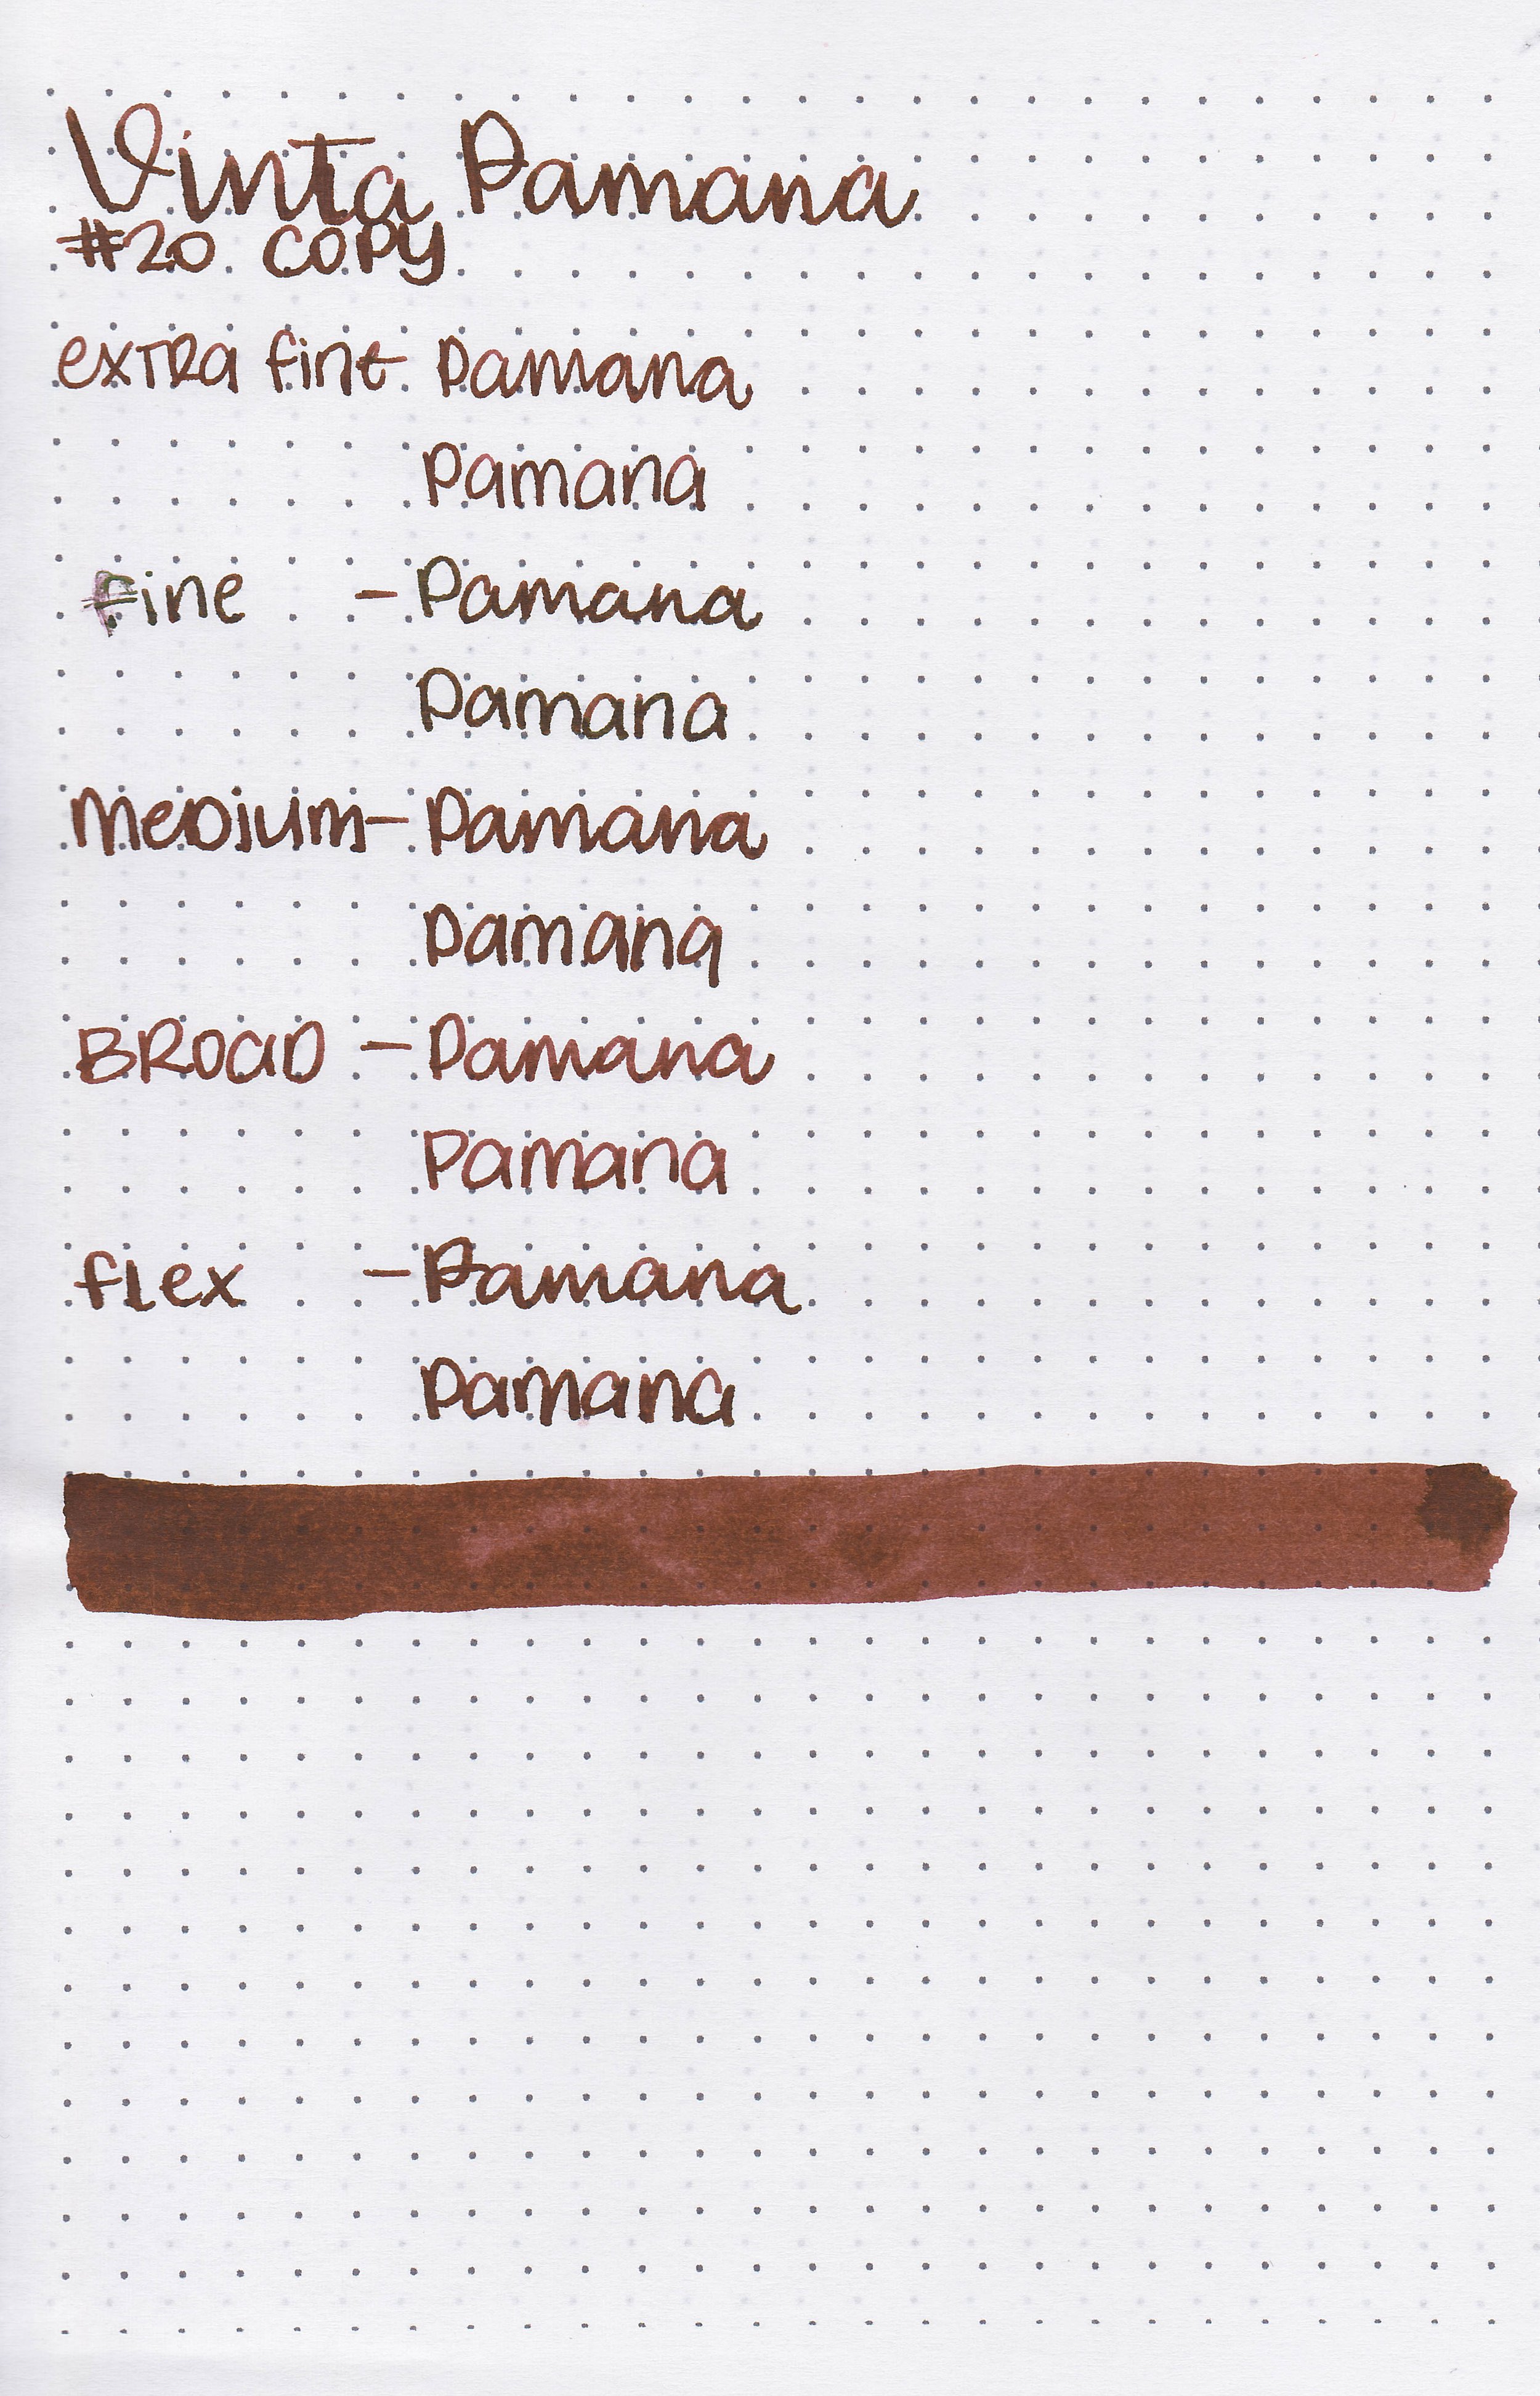 Vinta Pamana
#20 COPY
extra fine - Pamana
Pamana
fine - Pamana
Pamana
Medium - Pamana
Pamana
BROAD - Pamana
Pamana
flex - Pamana
Pamana